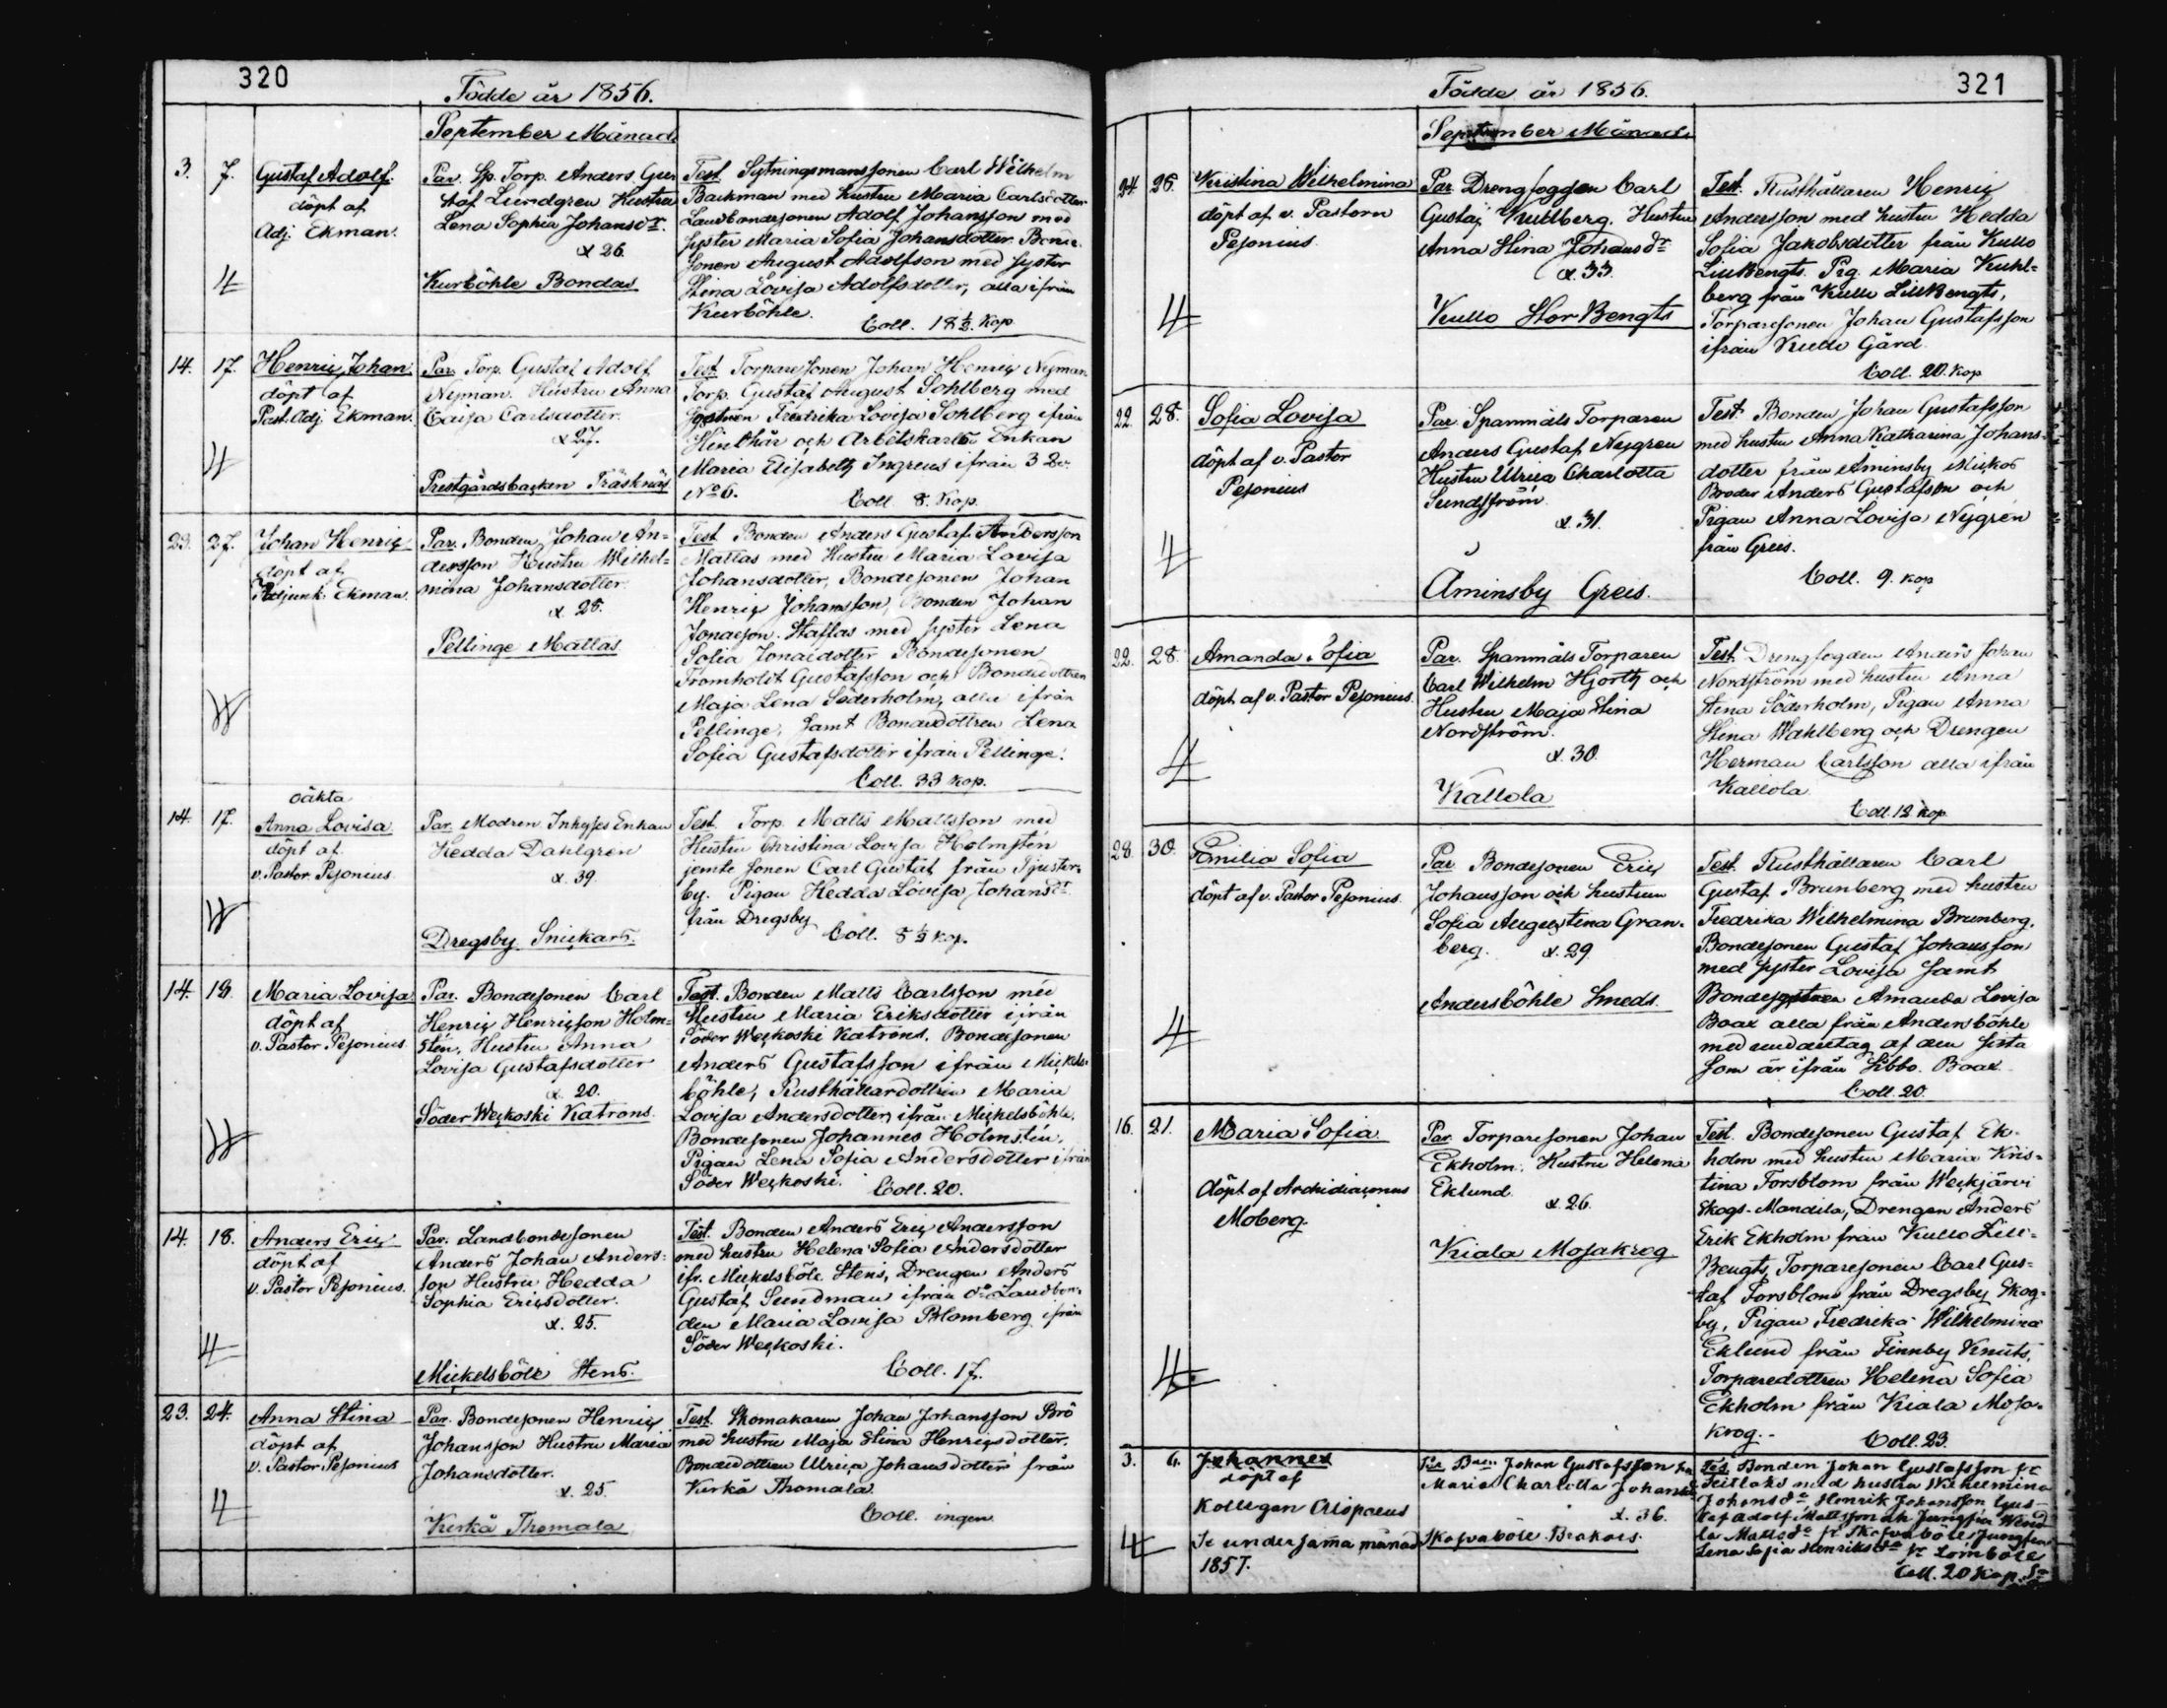 320
Födde år 1856.
September Månad
3. 7. Gustaf Adolf.
döpt af
Adj. Ekman.
Par. Sp. Torp. Anders Gus
taf Lundgren Hustru
Lena Sophia Johansdr.
x 26.
Kurböhle Bondas
Test. Sytningsmanssonen Carl Wilhelm
Backman med hustru Maria Carlsdotter
Landbondesonen Adolf Johansson med
syster Maria Sofia Johansdotter. Bonde-
sonen August Adolfson med syster
Stina Lovisa Adolfsdotter, alla ifrån
Kurböhle.
Coll. 18 ½. Kop
14. 17. Henric Johan
döpt af
Past. Adj. Ekman.
Par. Torp. Gustaf Adolf
Nyman. Hustru Anna
Caisa Carlsdotter.
x 27.
Prestgårdsbacken Träsknäs
Test. Torparesonen Johan Henric Nyman
Torp. Gustaf August Sohlberg med
hustrun Fredrika Lovisa Sohlberg ifrån
och Arbetskarls Enkan
Maria Elisabeth Ingreus ifrån 3
No 6.
Coll 8. Kop.
23. 27. Johan Henric
döpt af
Adjunk. Ekman.
Par. Bonden Johan An-
dersson Hustru Wilhel-
mina Johansdotter
x 28.
Pellinge Mattas
Test Bonden Anders Gustaf Andersson
Mattas med Hustru Maria Lovisa
Johansdotter, Bondesonen Johan
Henric Johansson, Bonden Johan
Jonasson Staffas med syster Lena
Sofia Jonasdotter Bondesonen
Tromholdt Gustafsson och Bondedottren
Maja Lena Söderholm, alla ifrån
Pellinge, samt Bondedottren Lena
Sofia Gustafsdotter ifrån Pellinge.
Coll. 33 kop.
oäkta
14. 17. Anna Lovisa
döpt af
v. Pastor Pesonius
Par. Modren Inhyses Enkan
Hedda Dahlgren
x. 39.
Dregsby Snickars.
Test. Torp. Matts Mattsson med
Hustru Christina Lovisa Holmstén
jemte sonen Carl Gustaf från Tjuster-
by. Pigan Hedda Lovisa Johansdr
från Dregsby
Coll. 8 ½ kop.
14. 19. Maria Lovisa
döpt af
v. Pastor Pesonius
Par. Bondesonen Carl
Henric Henricsson Holm-
stén, Hustru Anna
Lovisa Gustafsdotter
x. 20.
Söder Weckoski Katrons.
Test. Bonden Matts Carlsson med
Hustru Maria Eriksdotter ifrån
Söder Weckoski Katrons. Bondesonen
Anders Gustafsson ifrån Mickels-
böhle, Rusthållardottren Maria
Lovisa Andersdotter, ifrån Mickelsböhle,
Bondesonen Johannes Holmstén,
Pigan Lena Sofia Andersdotter ifrån
Söder Weckoski.
Coll. 20.
14. 18. Anders Eric
döpt af
v. Pastor Pesonius.
Par. Landbondesonen
Anders Johan Anders-
son Hustru Hedda
Sophia Ericsdotter.
x. 25.
Mickelsböle Stens.
Test. Bonden Anders Eric Andersson
med hustru Helena Sofia Andersdotter
ifr. Mickelsböle Stens, Drengen Anders
Gustaf Sundman ifrån do Landbon-
den Maria Lovisa Blomberg ifrån
Söder Weckoski.
Coll. 17.
23. 24. Anna Stina
döpt af
v. Pastor Pesonius
Par. Bondesonen Henric
Johansson Hustru Maria
Johansdotter.
x. 25.
Kerkå Thomala
Test. Skomakaren Johan Johansson Brö
med hustru Maja Stina Henricsdotter.
Bondedottren Ulrica Johansdotter från
Kerkå Thomala.
Coll. ingen
321
Födde år 1856.
September Månad
24. 26. Kristina Wilhelmina
döpt af v. Pastorn
Pesonius.
Par. Drengfogden Carl
Gustaf Kullberg. Hustru
Anna Stina Johansdr
x. 33.
Kullo Stor Bengts
Test. Rusthållaren Henric
Andersson med hustru Hedda
Sofia Jakobsdotter från Kullo
LillBengts. Pig. Maria Kuhl-
berg från Kullo LillBengts,
Torparesonen Johan Gustafsson
ifrån Kullo Gård.
Coll. 20. kop
22. 28. Sofia Lovisa
döpt af v. Pastor
Pesonius
Par. Spanmåls Torparen
Anders Gustaf Nygren
Hustru Ulrica Charlotta
Sundström.
x. 31.
Aminsby Greis.
Test. Bonden Johan Gustafsson
med hustru Anna Katharina Johans-
dotter från Aminsby Mickos
Broder Anders Gustafson och
Pigan Anna Lovisa Nygren
från Greis.
Coll. 9. kop
22. 28. Amanda Sofia
döpt af v. Pastor Pesonius.
Par. Spanmåls Torparen
Carl Wilhelm Hjorth och
Hustru Maja Stina
Nordström.
x. 30.
Kallola
Test. Drengfogden Anders Johan
Nordström med hustru Anna
Stina Söderholm, Pigan Anna
Stina Wahlberg och Drengen
Herman Carlsson alla ifrån
Kallola.
Coll. 12 kop
28. 30. Emilia Sofia
döpt af v. Pastor Pesonius.
Par. Bondesonen Eric
Johansson och hustrun
Sofia Augustina Gran-
berg. x. 29
Andersböhle Smeds.
Test. Rusthållaren Carl
Gustaf Brunberg med hustru
Fredrika Wilhelmina Brunberg.
Bondesonen Gustaf Johansson
med syster Lovisa samt
Amanda Lovisa
Boax alla från Andersböhle
med undantag af den sista
som är ifrån Sibbo. Boax
Coll. 20.
16. 21. Maria Sofia.
döpt af Archidiaconus
Moberg.
Par. Torparesonen Johan
Ekholm. Hustru Helena
Eklund.
x. 26.
Kiala Mosakrog
Test. Bondesonen Gustaf Ek-
holm med hustru Maria Kris-
tina Forsblom från Weckjärvi
Skogs-Mandila, Drengen Anders
Erik Ekholm från Kullo Lill-
Bengts, Torparesonen Carl Gus-
taf Forsblom från Dregsby Skog-
by, Pigan Fredrika Wilhelmina
Eklund från Finnby Knuts,
Torparedottren Helena Sofia
Ekholm från Kiala Mosa-
krog.
Coll. 23.
3. 6. Johannes
döpt af
Kollegan Crispaeus
Se under samma månad
1857.
Johan Gustafsson
Maria Charlotta Johansdr
x. 36.
Skafvaböle Brakars.
Tes. Bonden Johan Gustafsson fr
Seitlaks med hustru Wilhelmina
Johansdr, Henrik Johansson Gus-
taf Adolf Mattsson och Jungfru Wend
la Mattsdr fr Skafvaböle Jungfru
Lena Sofia Henriksdr fr Lömböle
Coll. 20 Kop. Sr